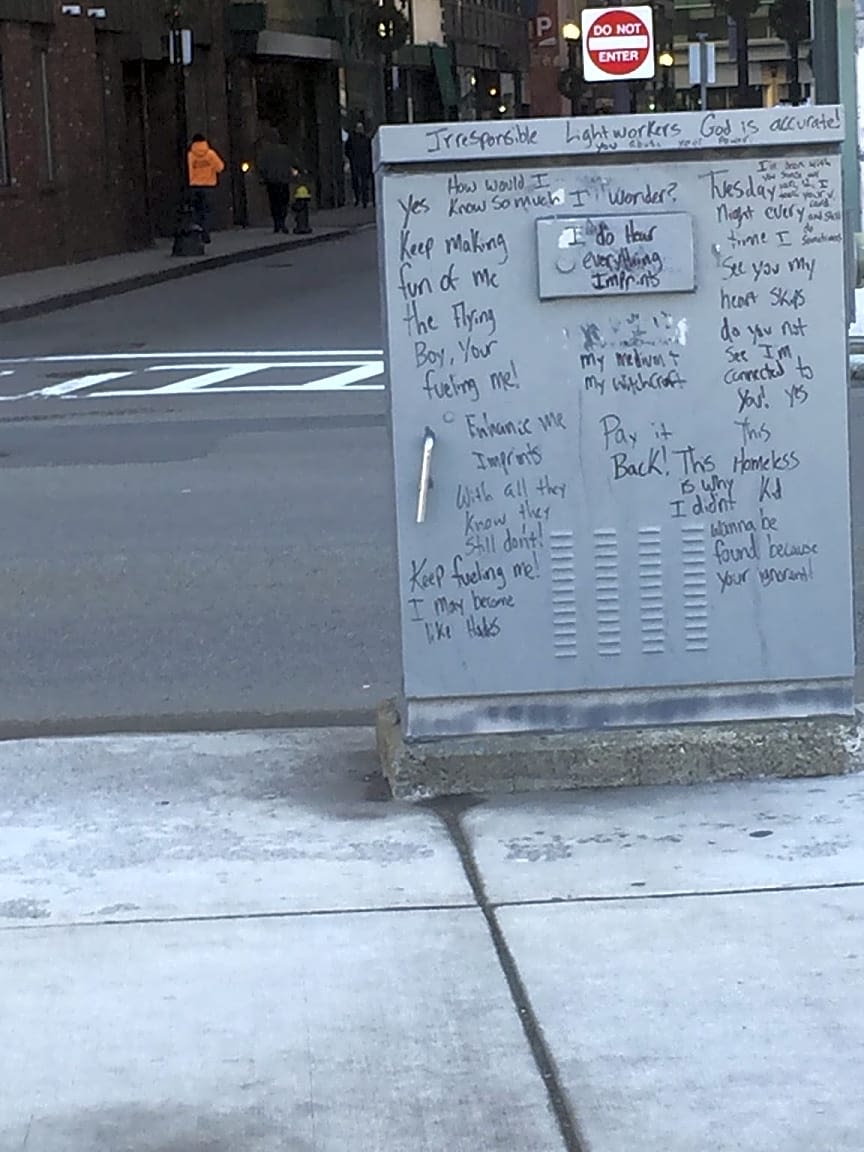 DO NOT
ENTER
P
Irresponsible Lightworkers God is accurate!
you abuse your power
yes
How would I
Know so much I wonder?
Keep making
fun of me
the Flying
Boy, Your
fueling me!
Enhance me
Imprints
With all they
Know they
Still don't!
Keep fueling me!
I may become
like Hades
I do Hear
everything
Imprints
my medium +
my witchcraft
Pay it
Back!
This
is why
I didnt
Tuesday
Night every
time I
See you my
heart Skips
do you not
See I'm
connected to
You! yes
This
Homeless
Kid
wanna be
found because
your ignorant!
and still
do
Sometimes